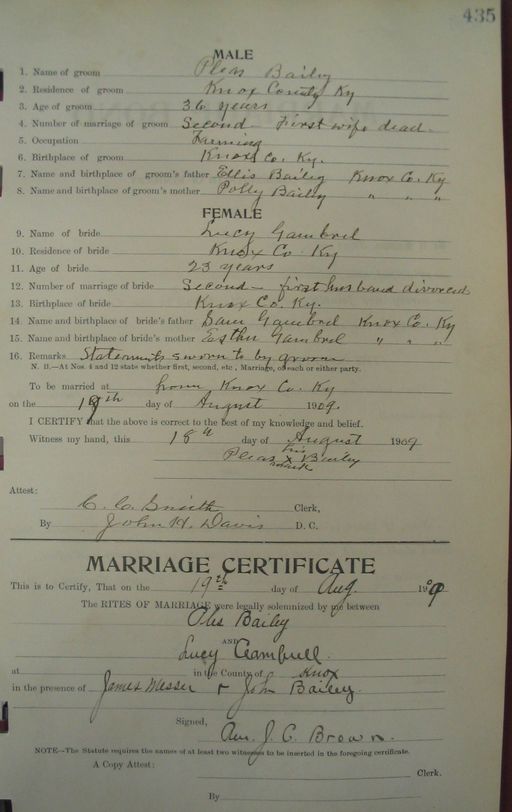 435
MALE
1. Name of groom Pleas Bailey
2. Residence of groom Knox County Ky
3. Age of groom 36 years
4. Number of marriage of groom Second - First wife dead.
5. Occupation Farming
6. Birthplace of groom Knox Co. Ky.
7. Name and birthplace of groom's father Ellis Bailey Knox Co. Ky
8. Name and birthplace of groom's mother Polly Bailey " " "
FEMALE
9. Name of bride Lucy Gambrel
10. Residence of bride Knox Co Ky
11. Age of bride 23 years
12. Number of marriage of bride Second - first husband divorced
13. Birthplace of bride Knox Co. Ky.
14. Name and birthplace of bride's father Sam Gambrel Knox Co. Ky
15. Name and birthplace of bride's mother Esther Gambrel " " "
16. Remarks Statements sworn to by groom
N. B.—At Nos. 4 and 12 state whether first, second, etc., Marriage, of each or either party.
To be married at home Knox Co. Ky
on the 19th day of August 1909.
I CERTIFY that the above is correct to the best of my knowledge and belief.
Witness my hand, this 18th day of August 1909
his
Pleas x Bailey
mark
Attest:
C. C. Smith Clerk,
By John H. Davis D. C.
MARRIAGE CERTIFICATE
This is to Certify, That on the 19th day of Aug. 1909
The RITES OF MARRIAGE were legally solemnized by me between
Ples Bailey
AND
Lucy Gambrell
at in the County of Knox
in the presence of James Messer & John Bailey.
Signed,
Rev. J. C. Brown.
NOTE—The Statute requires the names of at least two witnesses to be inserted in the foregoing certificate.
A Copy Attest:
Clerk.
By